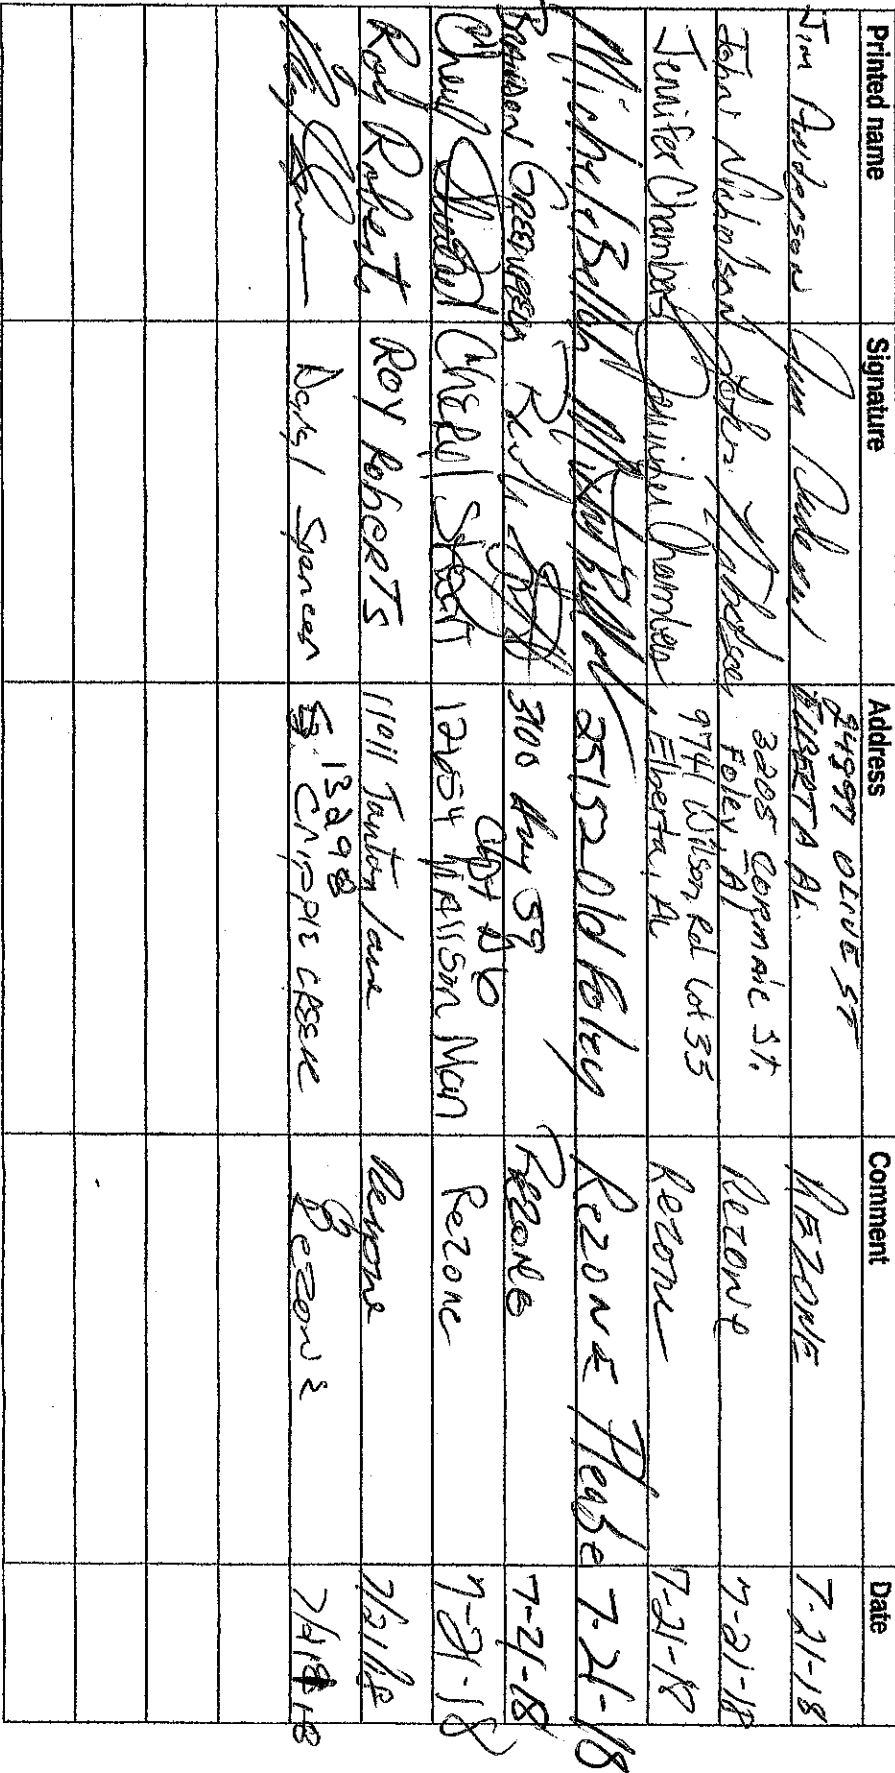 Printed name Signature Address Comment Date
Jim Anderson Jim Anderson OLIVE ST
ELBERTA AL. REZONE 7-21-18
John Nicholson John Nicholson 3205 St.
Foley, Al Rezone 7-21-18
Jennifer Chambers Jennifer Chambers 9741 Wilson Rd Lot 33
Elberta, AL Rezone 7-21-18
25152 Old Foley Rezone Please 7-21-18
BRANDON 3100 Hwy 59 Rezone 7-21-18
Cheryl Cheryl Apt D6
12654 Man Rezone 7-21-18
Roy Roberts ROY RobeRTS 11011 lane Rezone 7/21/18
Spencer 13298
CRIPPLE CREEK Rezone 18